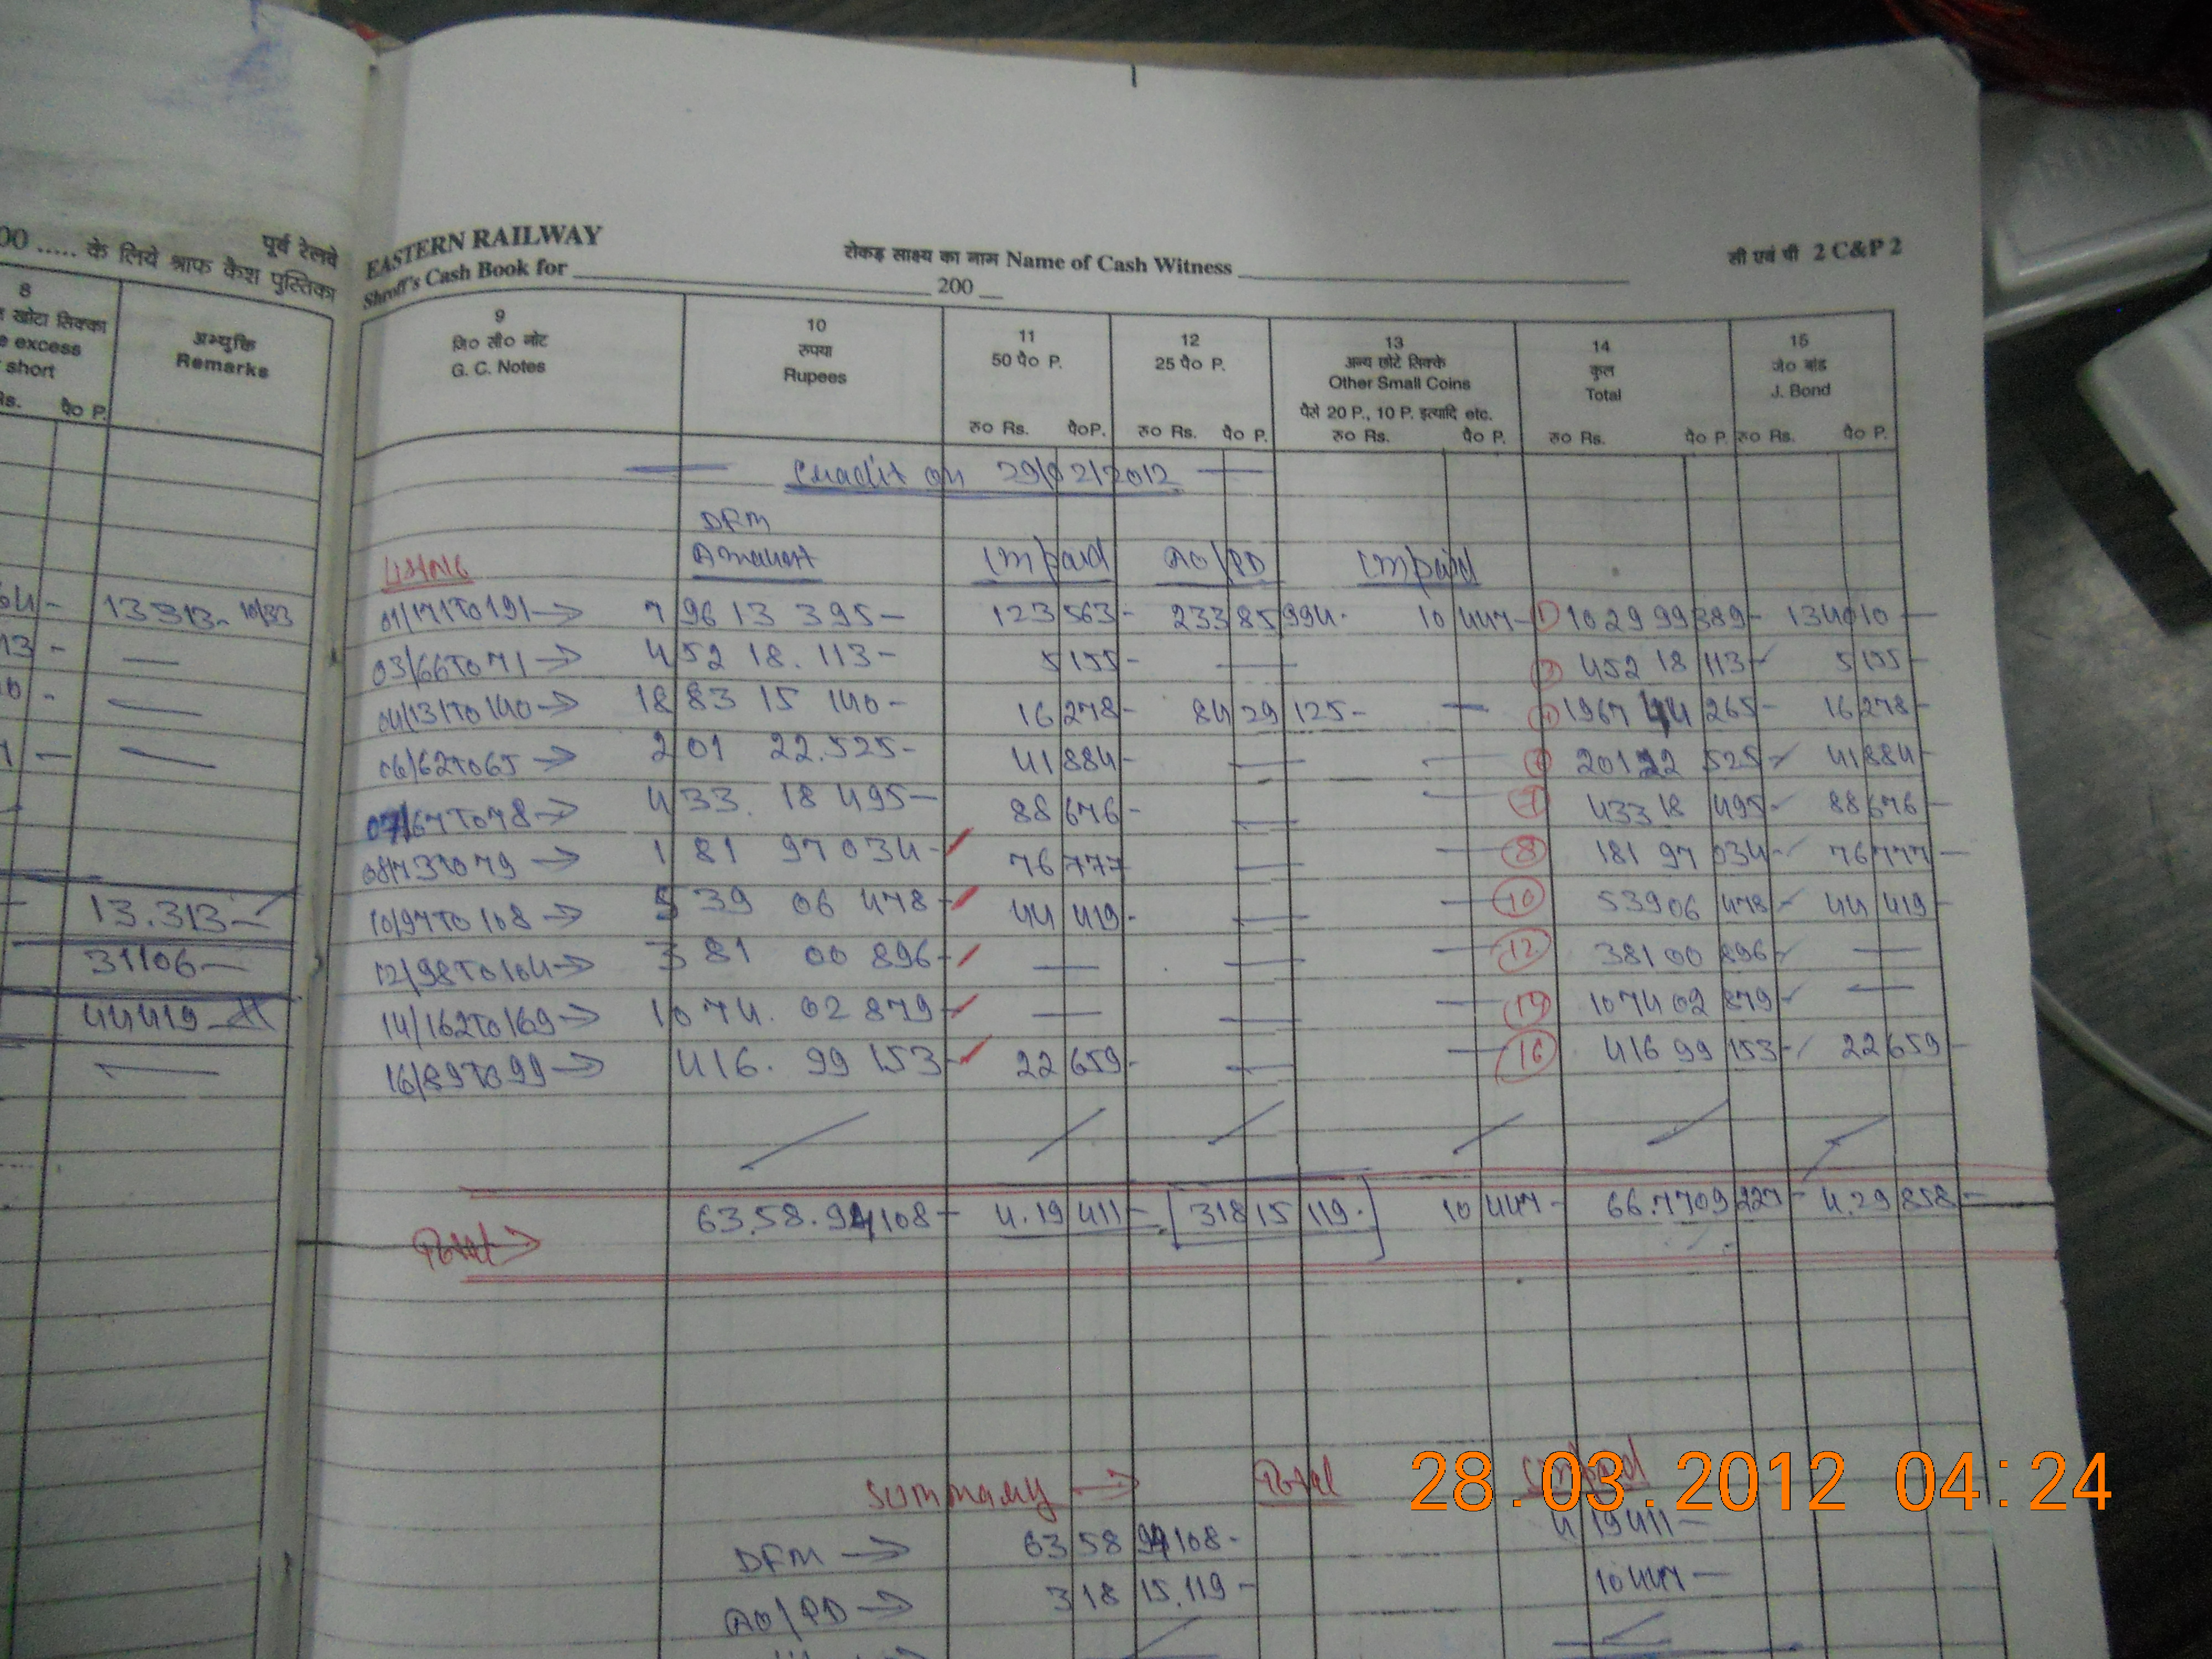 00 ..... के लिये श्राफ कैश पुस्तिका
पूर्व रेलवे
8
खोटा सिक्का
excess
short
Rs. पै० P.
अभ्युक्ति
Remarks
13313- 10/33
13.313-
31106-
44419-
EASTERN RAILWAY
Shroff's Cash Book for
200
रोकड़ साक्ष्य का नाम Name of Cash Witness
सी एवं पी 2 C&P 2
9 10 11 12 13 14 15
जि० सी० नोट रुपया 50 पै० P. 25 पै० P. अन्य छोटे सिक्के कुल जे० बांड
G. C. Notes Rupees Other Small Coins Total J. Bond
पैसे 20 P., 10 P. इत्यादि etc.
रु० Rs. पै०P. रु० Rs. पै० P. रु० Rs. पै० P. रु० Rs. पै० P. रु० Rs. पै० P.
Credit on 29/02/2012
DFM
Amount Impaid AO/PD Impaid
01/171To191→ 7 96 13 395- 123 563- 233 85 994- 10 447- 1 10 29 99 389- 134010-
03/66To71→ 4 52 18.113- 5 155- — 3 452 18 113- 5 155-
04/131To140→ 18 83 15 140- 16 278- 84 29 125- — 4 1967 44 265- 16 278-
06/62To65→ 2 01 22.525- 41 884- — — 6 201 22 525- 41 884-
07/67To78→ 4 33. 18 495- 88 676- — — 7 433 18 495- 88 676-
08/73To79→ 1 81 97 034- 76 777 — — 8 181 97 034- 76 777-
10/97To108→ 5 39 06 478- 44 419- — — 10 539 06 478- 44 419-
12/98To104→ 3 81 00 896- — — — 12 381 00 896- —
14/162To169→ 10 74. 02 879- — — — 14 1074 02 879- —
16/89To99→ 416. 99 153- 22 659- — — 16 416 99 153- 22 659-
Total→ 63.58.94108- 4.19 411- [318 15 119-] 10 447- 66.7709 227- 4.29 858-
Summary → Total Impaid
28.03.2012 04:24
DFM → 63 58 94108- 4 19411-
AO/PD → 318 15.119- 10447-